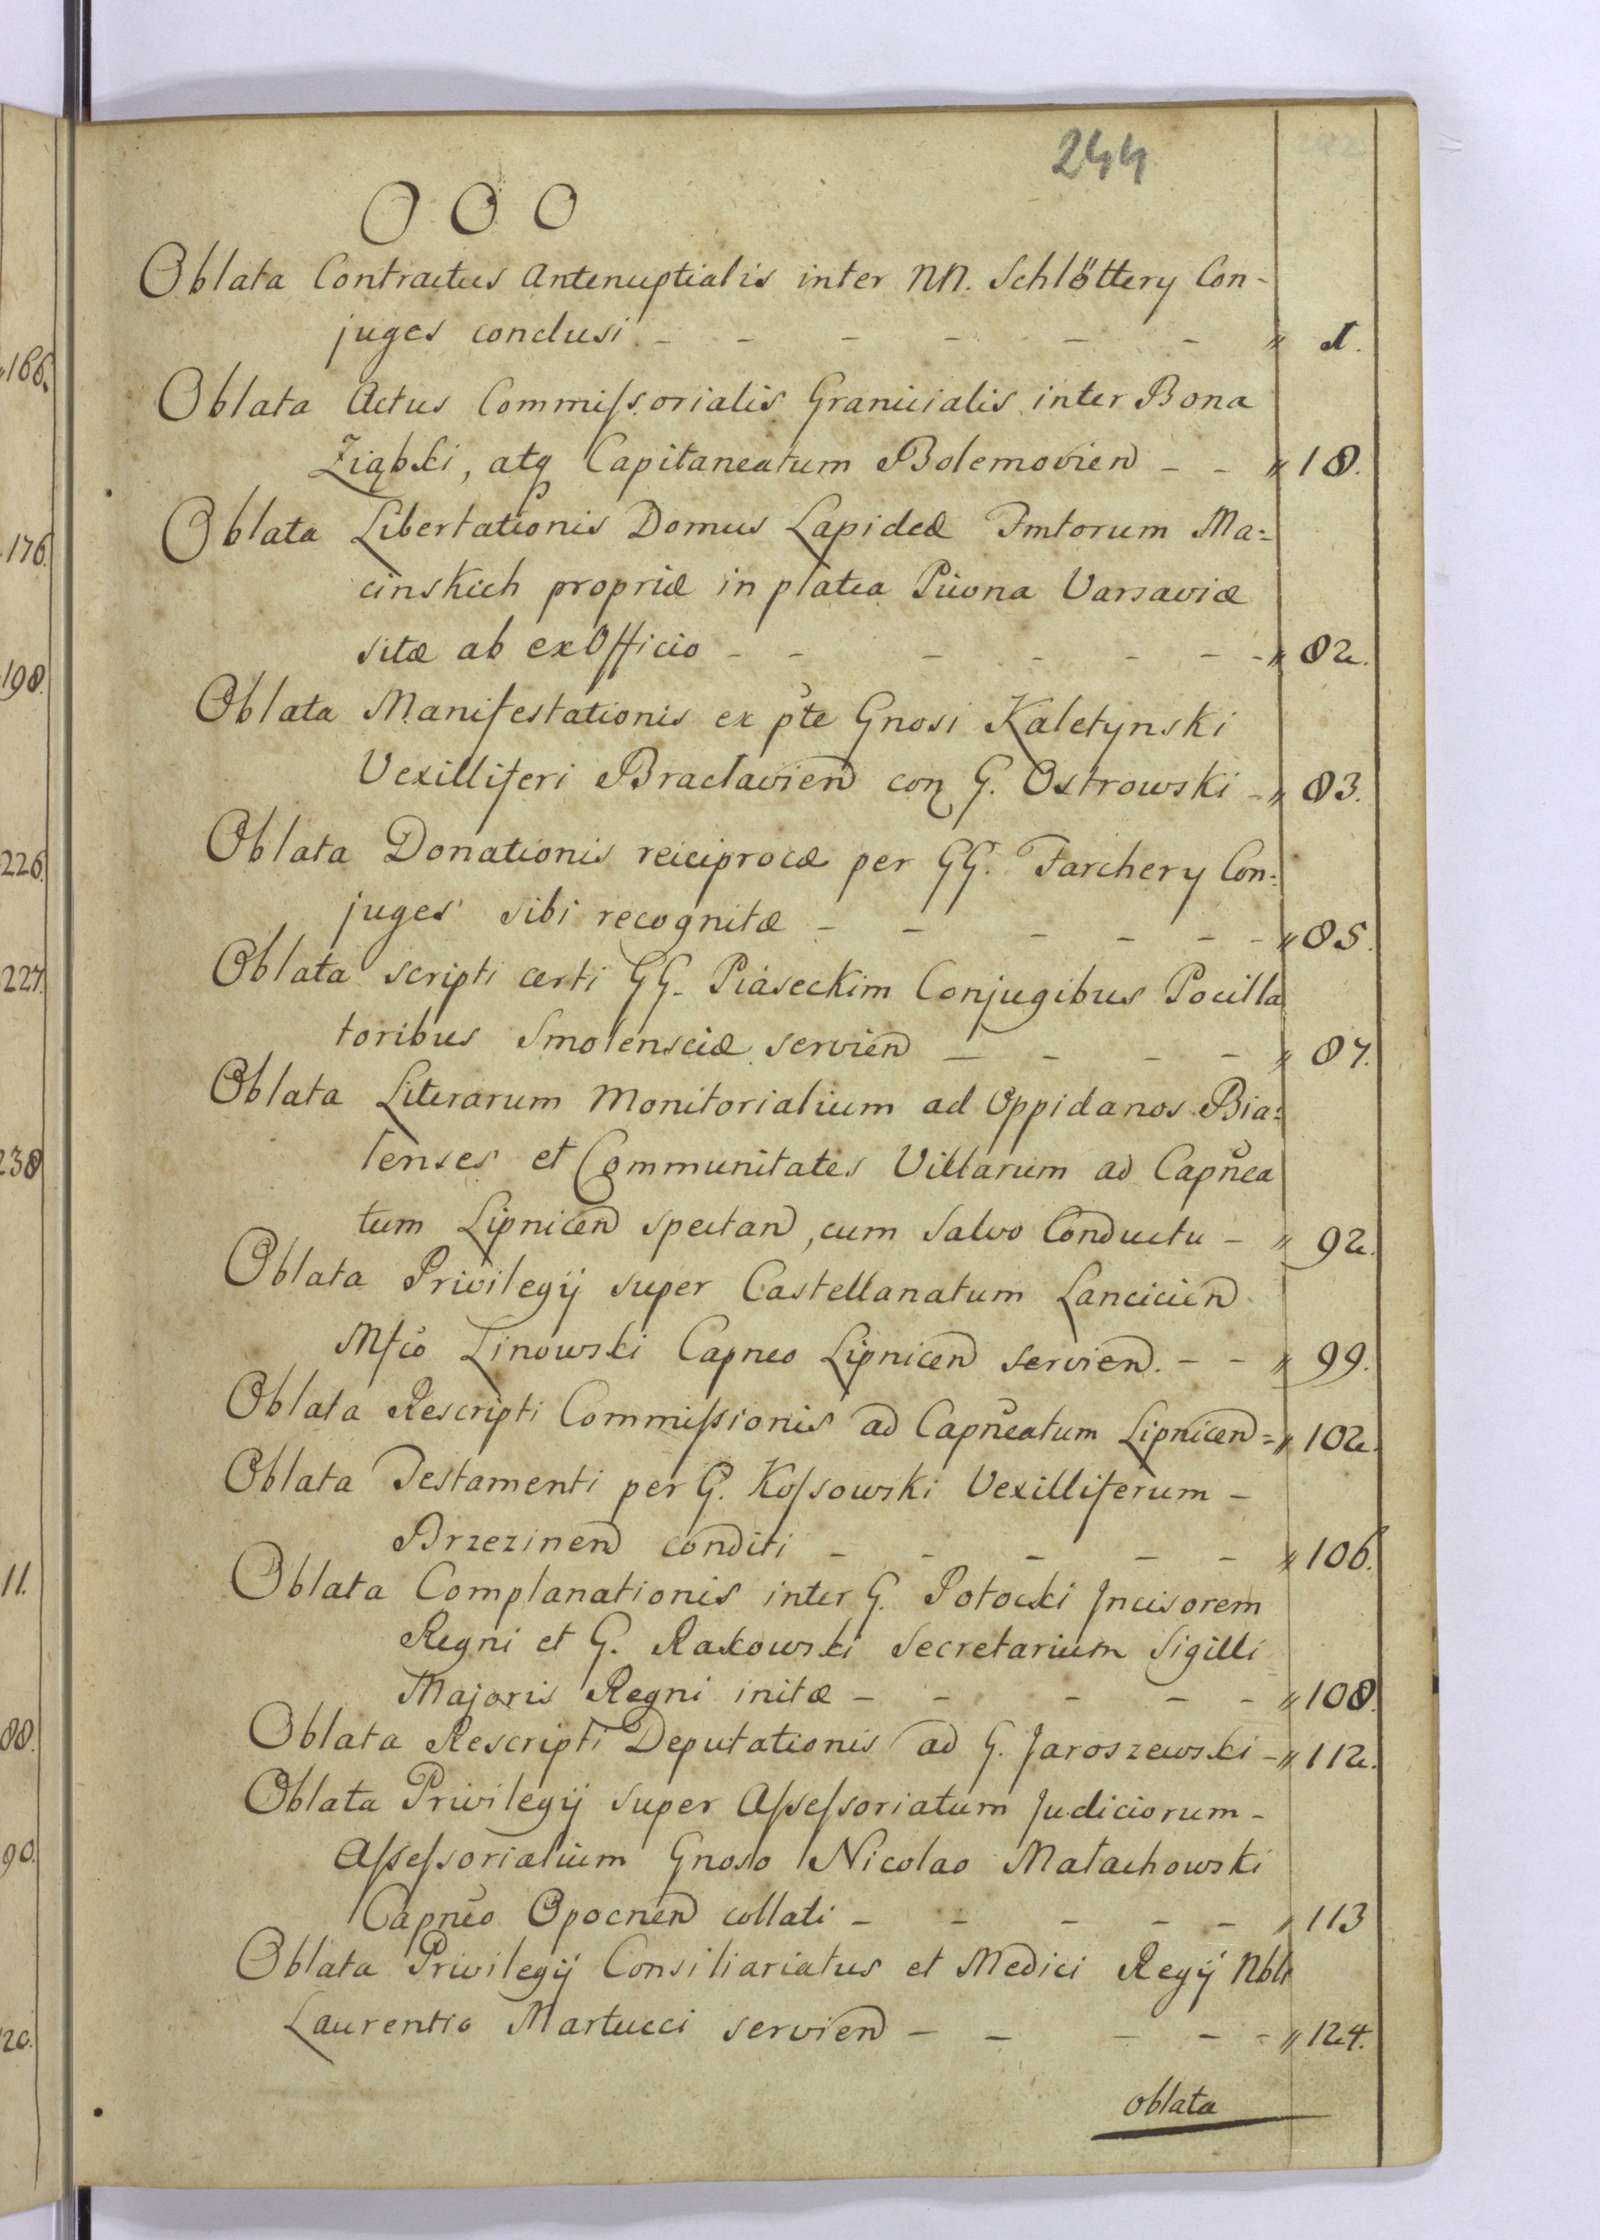 244
O O O
Oblata Contractus Antenuptialis inter NN. Schlöttery Con-
juges conclusi - - - - - - " 1.
Oblata Actus Commissorialis Granicialis inter Bona
Ziąbki, atq Capitaneatum Bolemovien - - " 18.
Oblata Libertationis Domus Lapideæ Fmtorum Ma=
cinskich propriæ in platea Piwna Varsaviæ
sitæ ab exOfficio - - - - - - - " 82.
Oblata Manifestationis ex pte Gnosi Kaletynski
Vexilliferi Braclavien con G. Ostrowski - " 83.
Oblata Donationis reiciprocæ per GG. Farchery Con=
juges sibi recognitæ - - - - - - " 85.
Oblata scripti certi GG. Piaseckim Conjugibus Pocilla
toribus Smolensciæ servien - - - - " 87.
Oblata Literarum Monitorialium ad Oppidanos Bia=
lenses et Communitates Villarum ad Capnea
tum Lipnicen spectan, cum Salvo Conductu - " 92.
Oblata Privilegij super Castellanatum Lancicien
Mfco Linowski Capneo Lipnicen servien. - - " 99.
Oblata Rescripti Commissionis ad Capneatum Lipnicen = " 102.
Oblata Testamenti per G. Kossowski Vexilliferum -
Brzezinen conditi - - - - - " 106.
Oblata Complanationis inter G. Potocki Incisorem
Regni et G. Rakowski Secretarium Sigilli
Majoris Regni initæ - - - - - " 108.
Oblata Rescripti Deputationis ad G. Jaroszewski - " 112.
Oblata Privilegij super Assessoriatum Judiciorum -
Assessorialium Gnoso Nicolao Małachowski
Capneo Opocnen collati - - - - - " 113
Oblata Privilegij Consiliariatus et Medici Regij Nbli
Laurentio Martucci servien - - - - - " 124.
oblata
166.
176.
198.
226.
227.
238
11.
88.
90.
20.